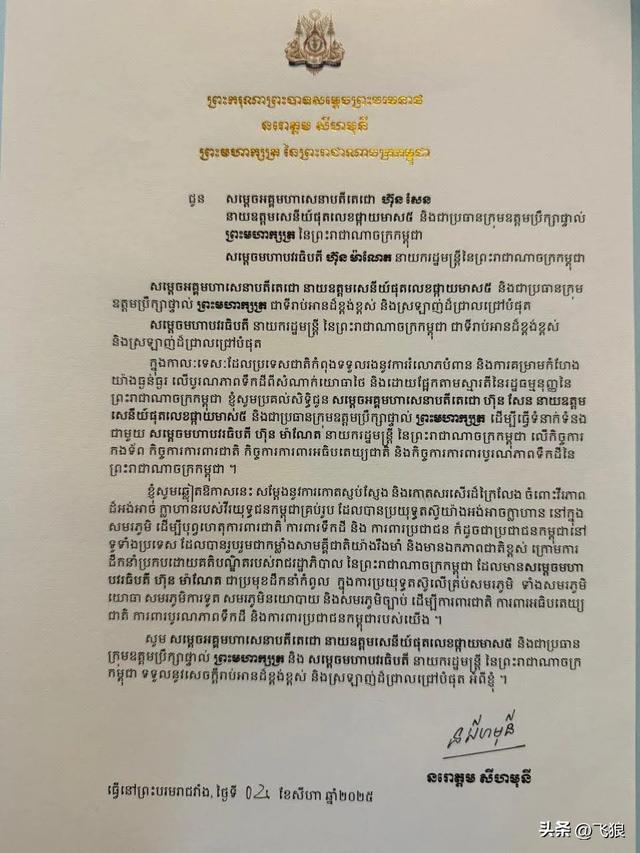 ព្រះករុណាព្រះបាទសម្តេចព្រះបរមនាថ
នរោត្តម សីហមុនី
ព្រះមហាក្សត្រ នៃព្រះរាជាណាចក្រកម្ពុជា
ជូន សម្តេចអគ្គមហាសេនាបតីតេជោ ហ៊ុន សែន
នាយឧត្តមសេនីយ៍ផុតលេខផ្កាយមាស៥ និងជាប្រធានក្រុមឧត្តមប្រឹក្សាផ្ទាល់
ព្រះមហាក្សត្រ នៃព្រះរាជាណាចក្រកម្ពុជា
សម្តេចមហាបវរធិបតី ហ៊ុន ម៉ាណែត នាយករដ្ឋមន្ត្រីនៃព្រះរាជាណាចក្រកម្ពុជា
សម្តេចអគ្គមហាសេនាបតីតេជោ នាយឧត្តមសេនីយ៍ផុតលេខផ្កាយមាស៥ និងជាប្រធានក្រុម
ឧត្តមប្រឹក្សាផ្ទាល់ ព្រះមហាក្សត្រ ជាទីរាប់អានដ៏ខ្ពង់ខ្ពស់ និងស្រឡាញ់ដ៏ជ្រាលជ្រៅបំផុត
សម្តេចមហាបវរធិបតី នាយករដ្ឋមន្ត្រី នៃព្រះរាជាណាចក្រកម្ពុជា ជាទីរាប់អានដ៏ខ្ពង់ខ្ពស់
និងស្រឡាញ់ដ៏ជ្រាលជ្រៅបំផុត
ក្នុងកាលៈទេសៈដែលប្រទេសជាតិកំពុងទទួលរងនូវការរំលោភបំពាន និងការគម្រាមកំហែង
យ៉ាងធ្ងន់ធ្ងរ លើបូរណភាពទឹកដីពីសំណាក់យោធាថៃ និងដោយផ្អែកតាមស្មារតីនៃរដ្ឋធម្មនុញ្ញនៃ
ព្រះរាជាណាចក្រកម្ពុជា ខ្ញុំសូមប្រគល់សិទ្ធិជូន សម្តេចអគ្គមហាសេនាបតីតេជោ ហ៊ុន សែន នាយឧត្តម
សេនីយ៍ផុតលេខផ្កាយមាស៥ និងជាប្រធានក្រុមឧត្តមប្រឹក្សាផ្ទាល់ ព្រះមហាក្សត្រ ដើម្បីធ្វើទំនាក់ទំនង
ជាមួយ សម្តេចមហាបវរធិបតី ហ៊ុន ម៉ាណែត នាយករដ្ឋមន្ត្រី នៃព្រះរាជាណាចក្រកម្ពុជា លើកិច្ចការ
កងទ័ព កិច្ចការការពារជាតិ កិច្ចការការពារអធិបតេយ្យជាតិ និងកិច្ចការការពារបូរណភាពទឹកដីនៃ
ព្រះរាជាណាចក្រកម្ពុជា ។
ខ្ញុំសូមឆ្លៀតឱកាសនេះ សម្តែងនូវការកោតស្ញប់ស្ញែង និងកោតសរសើរដ៏ក្រៃលែង ចំពោះវីរភាព
ដ៏អង់អាច ក្លាហានរបស់វីរយុទ្ធជនកម្ពុជាគ្រប់រូប ដែលបានប្រយុទ្ធតស៊ូយ៉ាងអង់អាចក្លាហាន នៅក្នុង
សមរភូមិ ដើម្បីបុព្វហេតុការពារជាតិ ការពារទឹកដី និង ការពារប្រជាជន ក៏ដូចជាប្រជាជនកម្ពុជានៅ
ទូទាំងប្រទេស ដែលបានរួបរួមជាកម្លាំងសាមគ្គីជាតិយ៉ាងរឹងមាំ និងមានឯកភាពជាតិខ្ពស់ ក្រោមការ
ដឹកនាំប្រកបដោយគតិបណ្ឌិតរបស់រាជរដ្ឋាភិបាល នៃព្រះរាជាណាចក្រកម្ពុជា ដែលមានសម្តេចមហា
បវរធិបតី ហ៊ុន ម៉ាណែត ជាប្រមុខដឹកនាំកំពូល ក្នុងការប្រយុទ្ធតស៊ូលើគ្រប់សមរភូមិ ទាំងសមរភូមិ
យោធា សមរភូមិការទូត សមរភូមិនយោបាយ និងសមរភូមិច្បាប់ ដើម្បីការពារជាតិ ការពារអធិបតេយ្យ
ជាតិ ការពារបូរណភាពទឹកដី និងការពារប្រជាជនកម្ពុជារបស់យើង ។
សូម សម្តេចអគ្គមហាសេនាបតីតេជោ នាយឧត្តមសេនីយ៍ផុតលេខផ្កាយមាស៥ និងជាប្រធាន
ក្រុមឧត្តមប្រឹក្សាផ្ទាល់ ព្រះមហាក្សត្រ និង សម្តេចមហាបវរធិបតី នាយករដ្ឋមន្ត្រី នៃព្រះរាជាណាចក្រ
កម្ពុជា ទទួលនូវសេចក្តីរាប់អានដ៏ខ្ពង់ខ្ពស់ និងស្រឡាញ់ដ៏ជ្រាលជ្រៅបំផុត អំពីខ្ញុំ ។
ន សីហមុនី
នរោត្តម សីហមុនី
ធ្វើនៅព្រះបរមរាជវាំង, ថ្ងៃទី ខែសីហា ឆ្នាំ២០២៥
头条 @飞狼